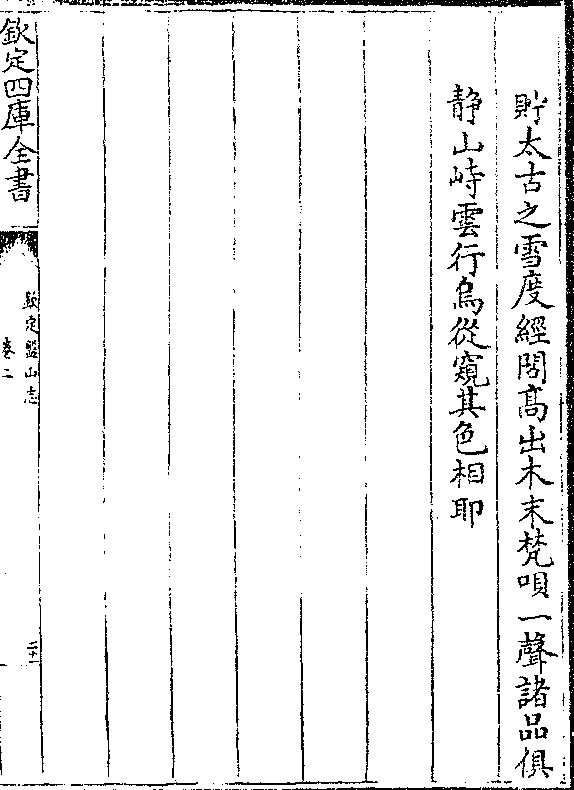 貯太古之雪度經閣髙出木末梵唄一聲諸品俱
静山峙雲行烏從窺其色相耶
欽定四庫全書
欽定盤山志
卷二
二十一